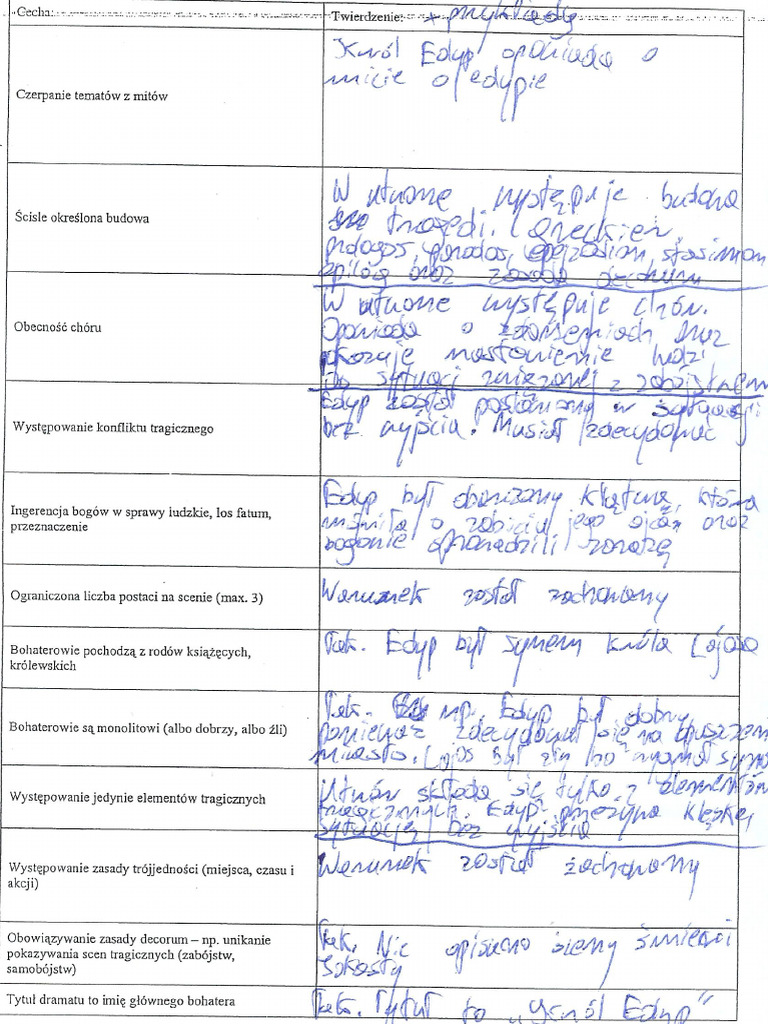 Cecha:
Twierdzenie: + przykłady
Czerpanie tematów z mitów
Król Edyp opowiada o
micie o edypie
Ścisle określona budowa
W utworze występuje budowa
tragedi. Greckiej.
prologos, parodos, epejzodion, stasimon
epilog oraz zasada decorum
Obecność chóru
W utworze występuje chór.
Opowiada o zdarzeniach oraz
pokazuje nastawienie ludzi
do sytuacji związanej z zabójstwem
Występowanie konfliktu tragicznego
Edyp został postawiony w sytuacji
bez wyjścia. Musiał zdecydować
Ingerencja bogów w sprawy ludzkie, los fatum,
przeznaczenie
Edyp był obarczony klątwą, która
mówiła o zabiciu jego ojca oraz
bogowie sprowadzili zarazę
Ograniczona liczba postaci na scenie (max. 3)
Warunek został zachowany
Bohaterowie pochodzą z rodów książęcych,
królewskich
Tak. Edyp był synem króla Lajosa
Bohaterowie są monolitowi (albo dobrzy, albo źli)
Tak. np. Edyp był dobry,
ponieważ zdecydował się na opuszczenie
miasta. Lajos był zły bo syna
Występowanie jedynie elementów tragicznych
Utwór składa się tylko z elementów
tragicznych. Edyp przeżywa klęskę,
sytuację bez wyjścia
Występowanie zasady trójjedności (miejsca, czasu i
akcji)
Warunek został zachowany
Obowiązywanie zasady decorum – np. unikanie
pokazywania scen tragicznych (zabójstw,
samobójstw)
Tak. Nie opisano sceny śmierci
Jokasty
Tytuł dramatu to imię głównego bohatera
Tak. Tytuł to „Król Edyp”